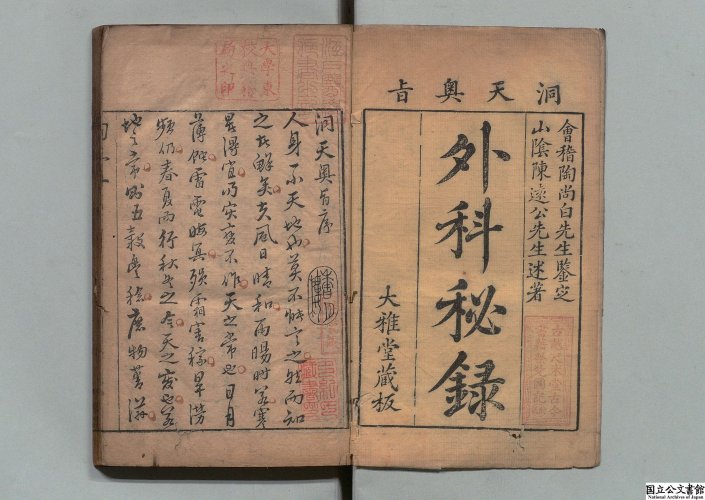 洞天奧旨
會稽陶尚白先生鑒定
山陰陳遠公先生述著
外科秘錄
大雅堂藏板
大學東
校典籍
局之印
洞天奧旨序
人身一小天地也莫不能言之然而知
之者鮮矣夫風日晴和雨暘時若寒
暑得宜乃災變不作天之常也日月
薄蝕雷電晦冥殞霜害稼旱澇
頻仍春夏而行秋冬之令天之變也若
地之常則五穀豐稔庶物蕃滋
国立公文書館
National Archives of Japan